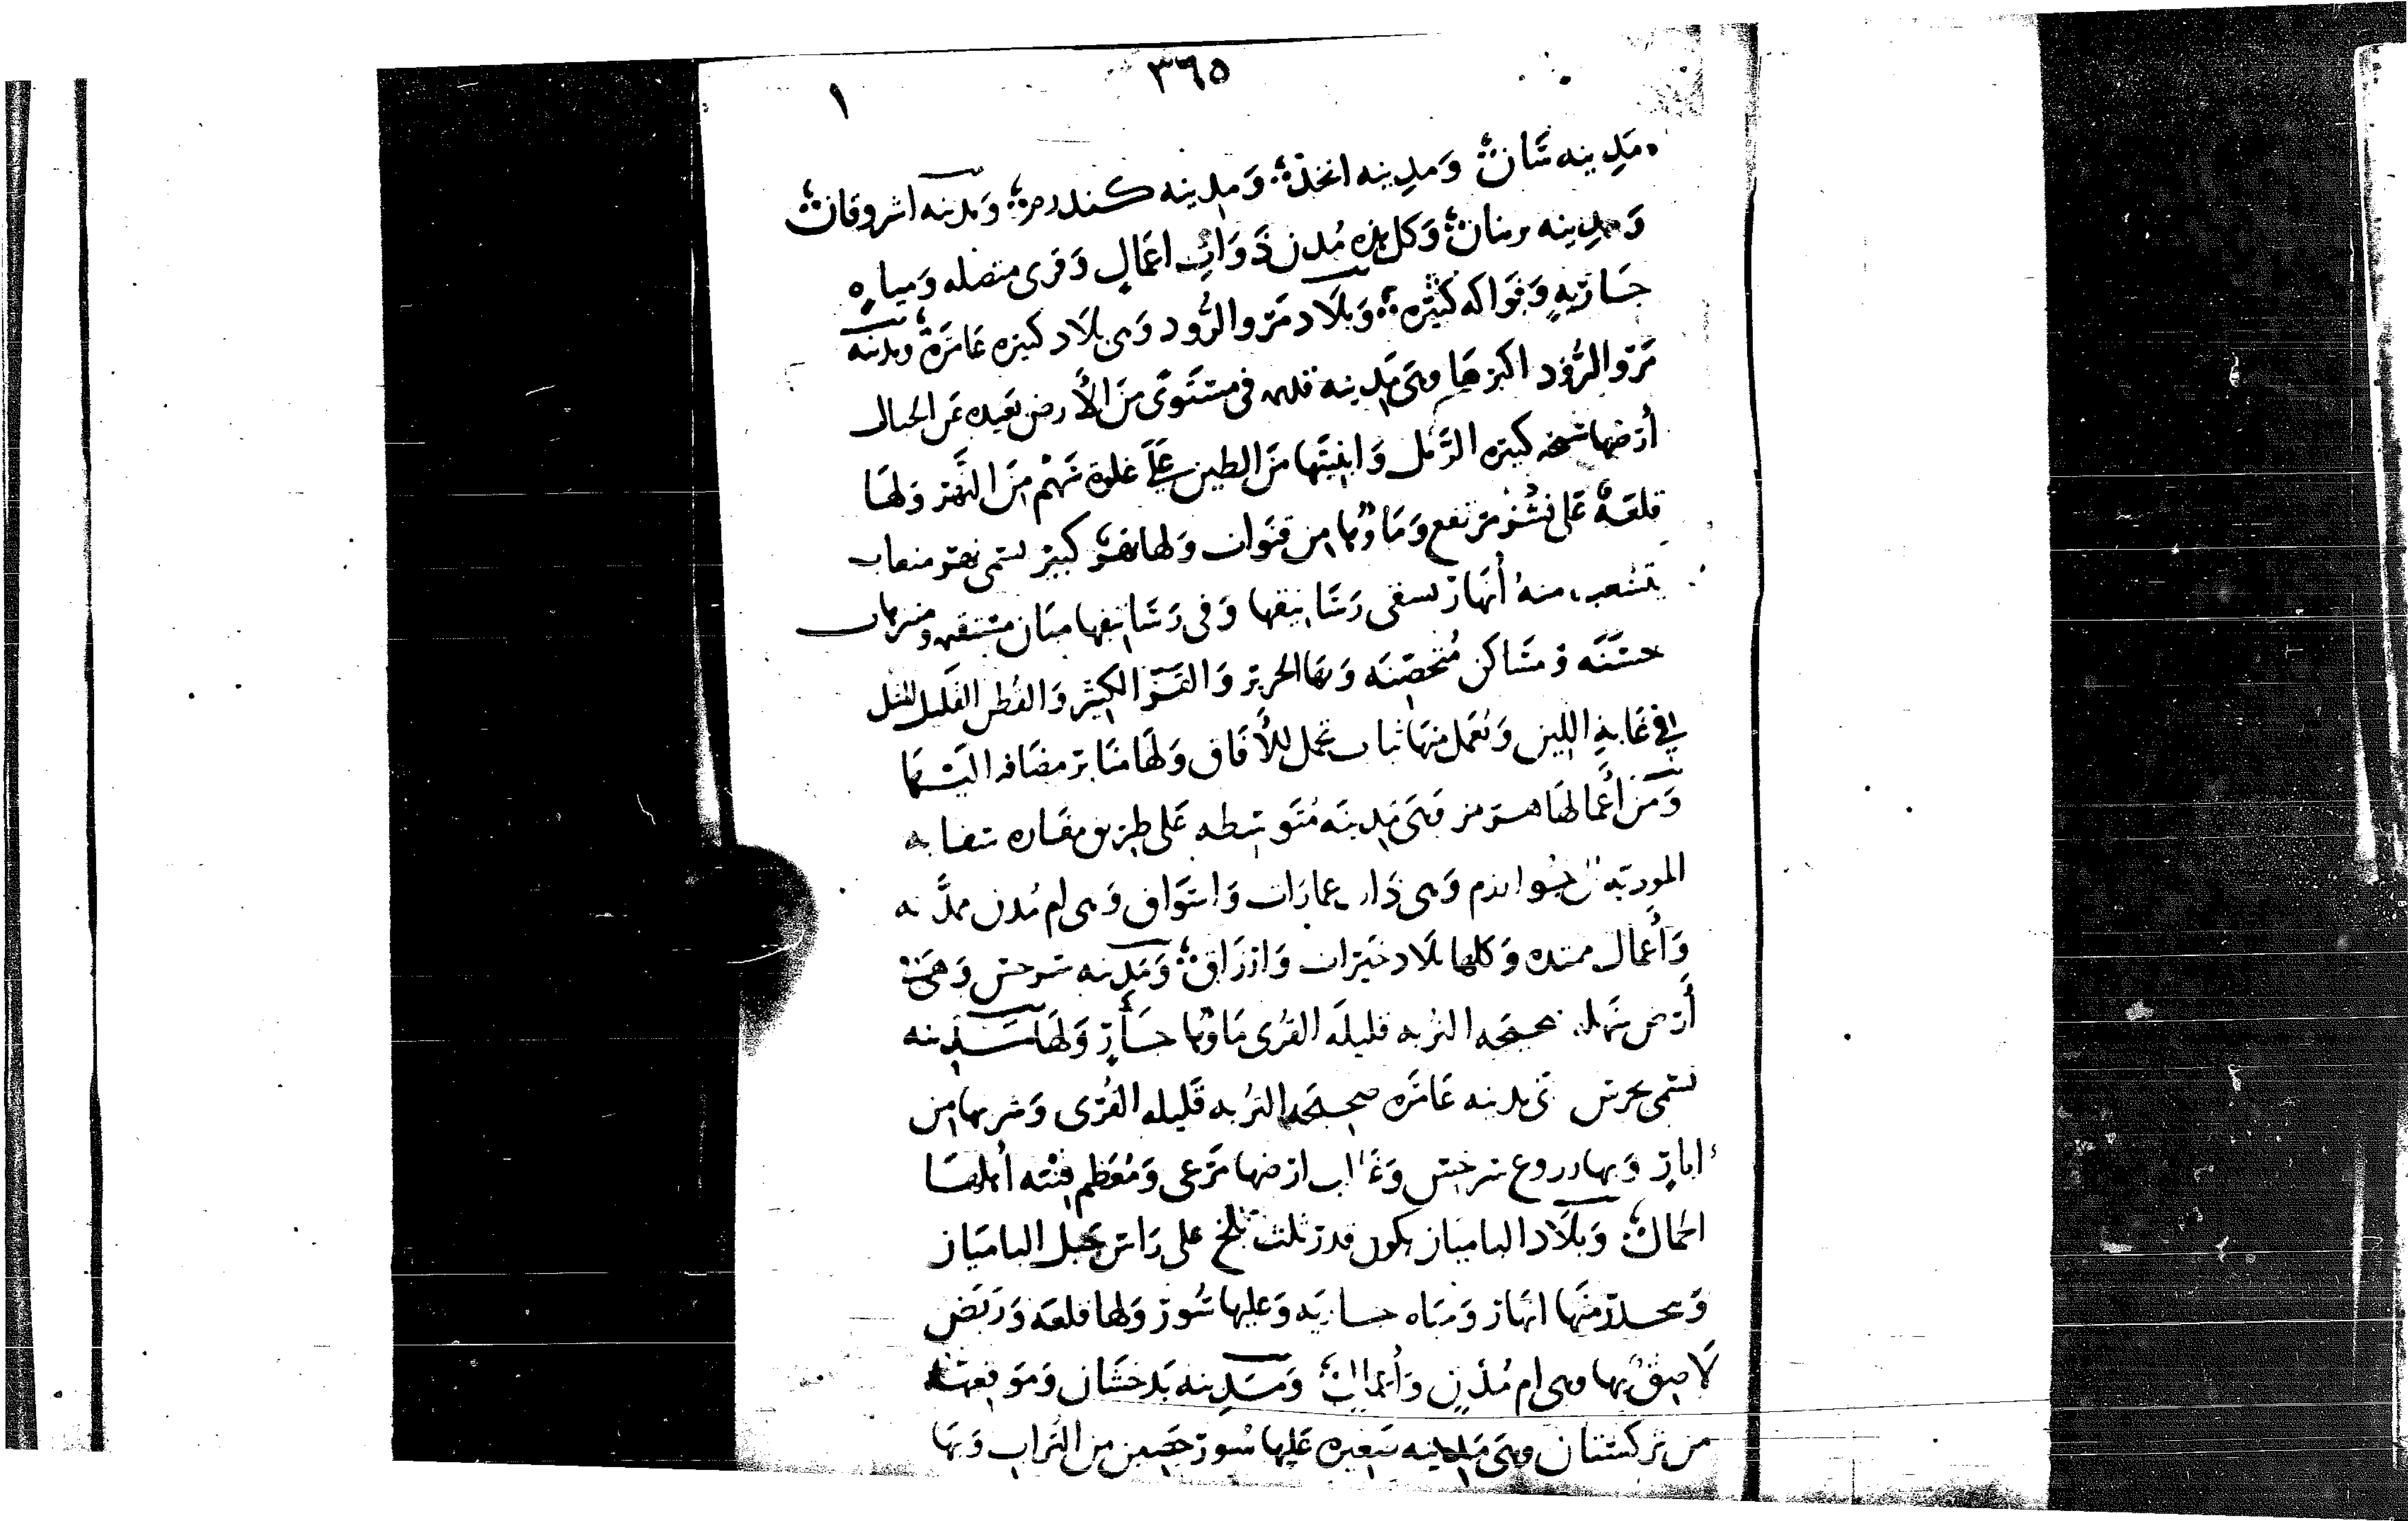 ٣٦٥
١
مدينه شان ومدينه انخذ ومدينه كندرم ومدينه اشروقان
ومدينه وكل هذه مدن ذوات اعمال وقرى متصله ومياه
جاريه وفواكه كثيره وبلاد مرو الرود وهى بلاد كثيره عامرة ومدينه
مرو الرود اكبرها وهى مدينه فى مستوى من الأرض بعيده عن الجبال
أرضها سبخه كثيره الرمل وابنيتها من الطين على غلوة سهم من النهر ولها
قلعة على نشز مرتفع وماؤها من قنوات ولها نهر كبير يسمى نهر
يتشعب منه أنهار تسقى رساتيقها وفى رساتيقها مبان
حسنه ومساكن محصنه وبها الحرير والقز الكثير والقطن
فى غاية اللين ونعمل منها ثياب تحمل للأفاق ولها منابر مضافه اليها
ومن أعمالها هرمز وهى مدينه متوسطه على طريق مفازه
وهى دار عمارات واسواق وهى ام مدن
وأعمال ممتده وكلها بلاد خيرات وارزاق ومدينه سرخس وهى
أرض سهله صحيحه التربه قليله القرى ماؤها جار ولها مدينه
تسمى مدينه عامره صحيحه التربه قليله القرى وشربها من
ابار وبها سرخس ارضها مرعى ومعظم قنيه أهلها
الجمال وبلاد الباميان يكون قدر ثلث بلخ على راس جبل الباميان
وينحدر منها انهار ومياه جاريه وعليها سور ولها قلعه وربض
لاصق بها وهى ام مدن وأعمال ومدينه بدخشان وموقعها
من تركستان وهى مدينه صغيره عليها سور حصين من التراب وبها